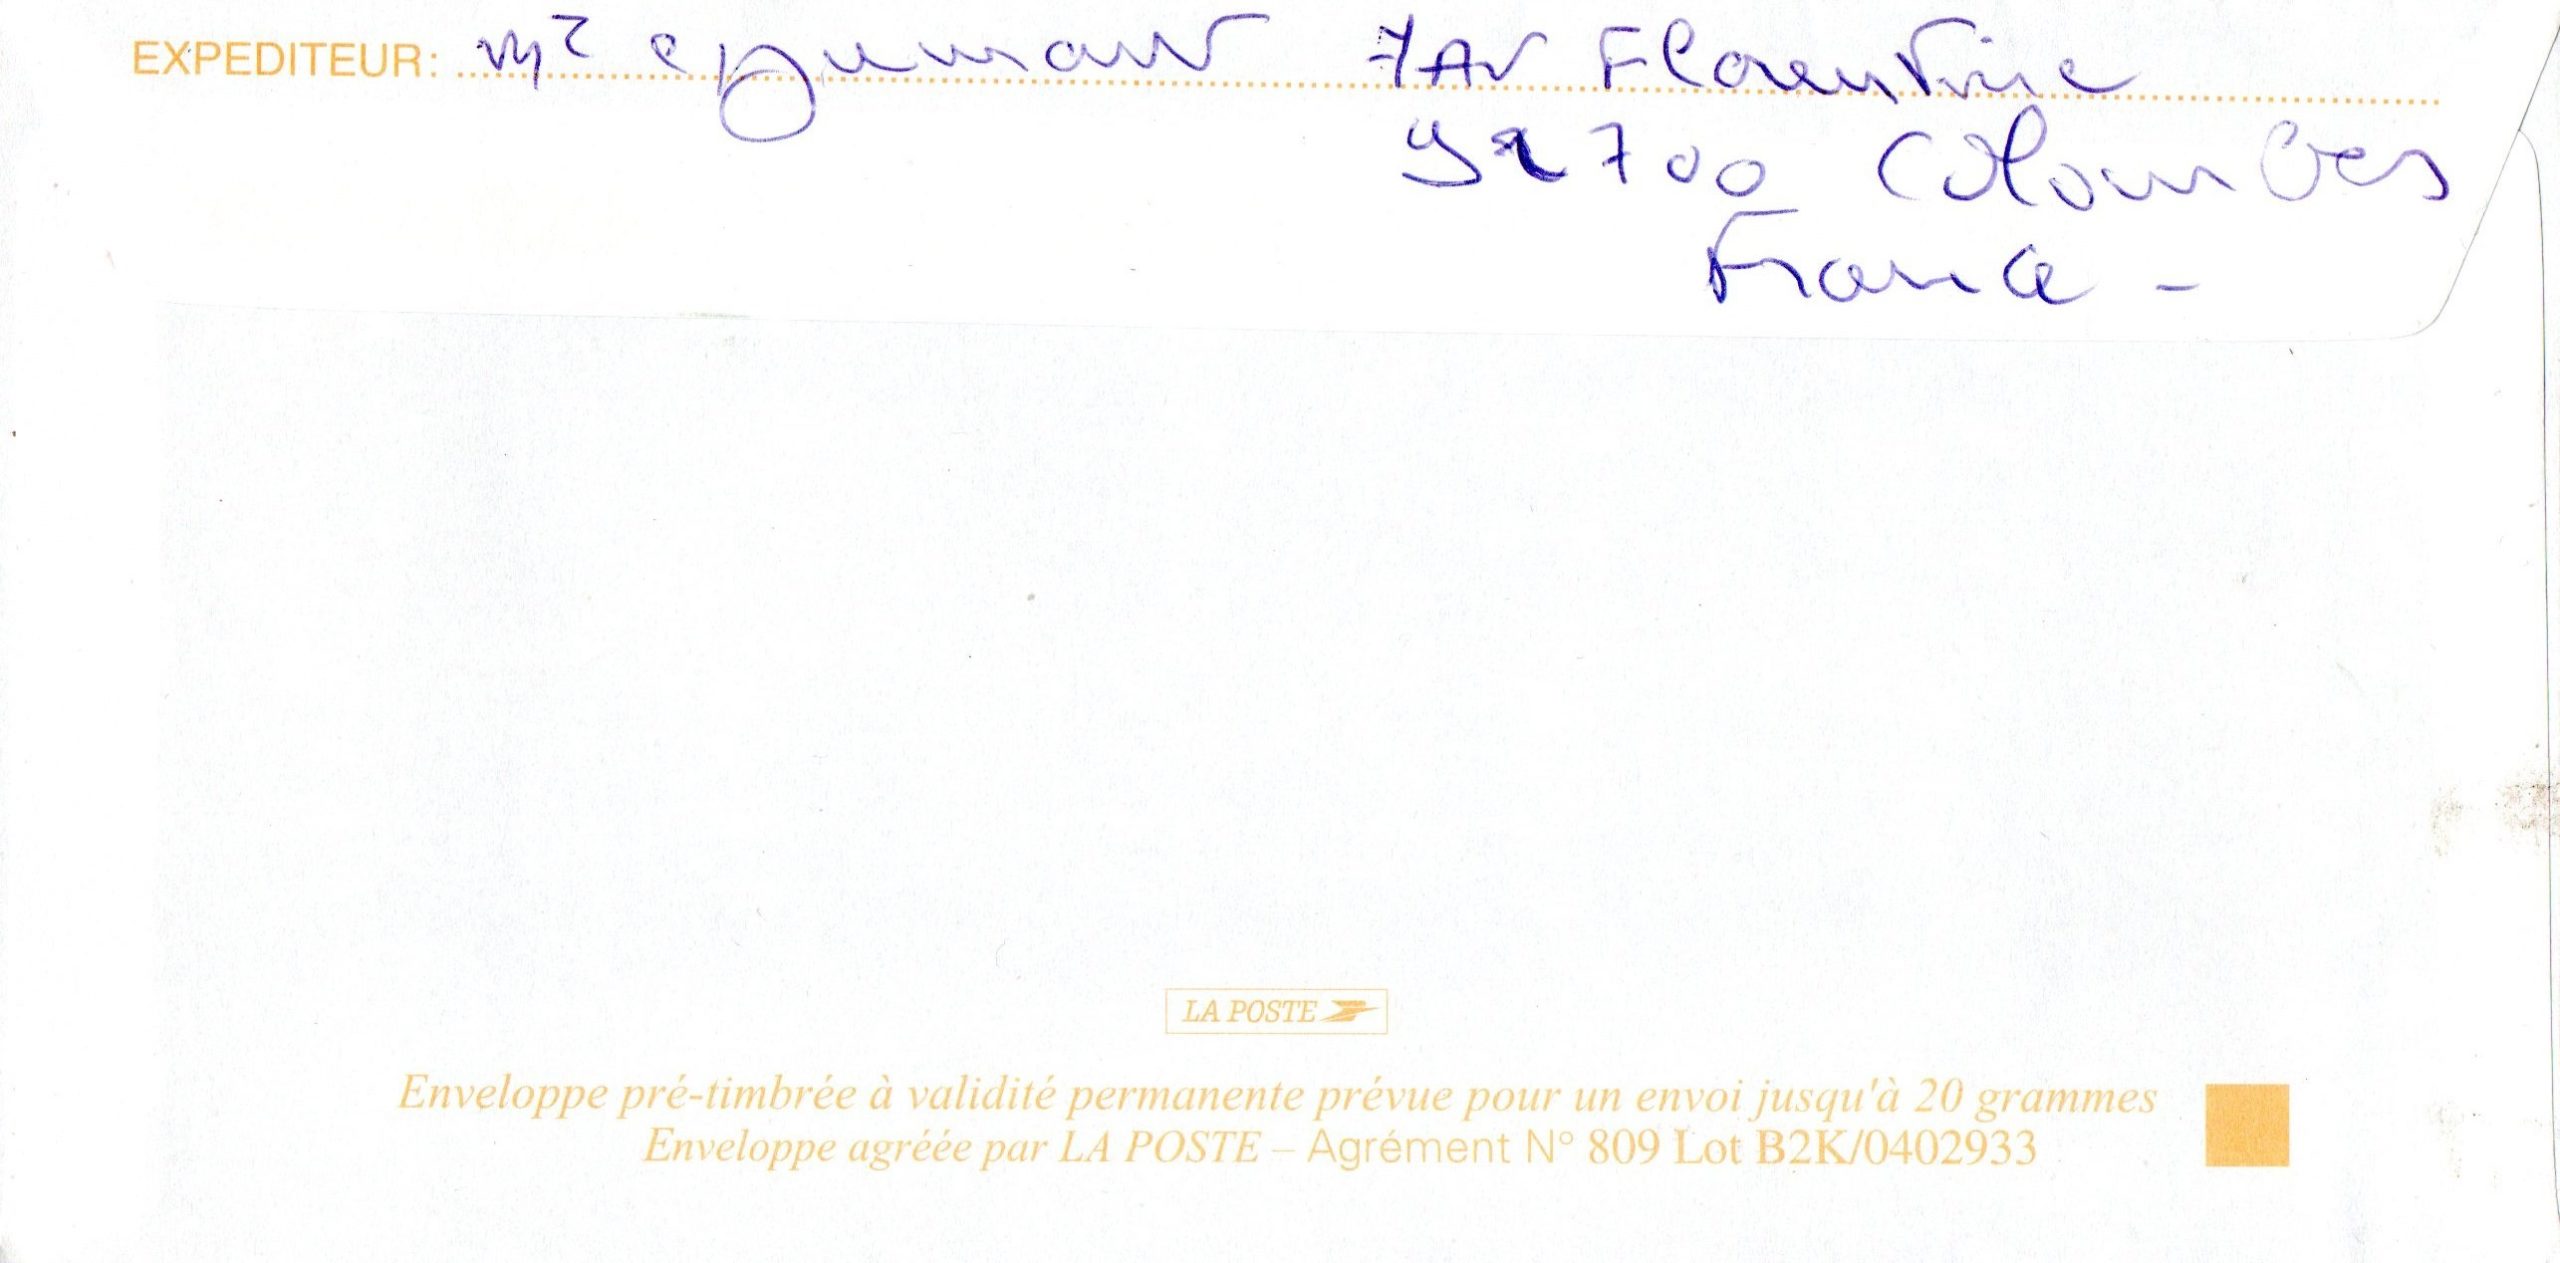 EXPEDITEUR: 7 Av Florentine
92700 Colombes
France -
LA POSTE
Enveloppe pré-timbrée à validité permanente prévue pour un envoi jusqu'à 20 grammes
Enveloppe agréée par LA POSTE – Agrément N° 809 Lot B2K/0402933